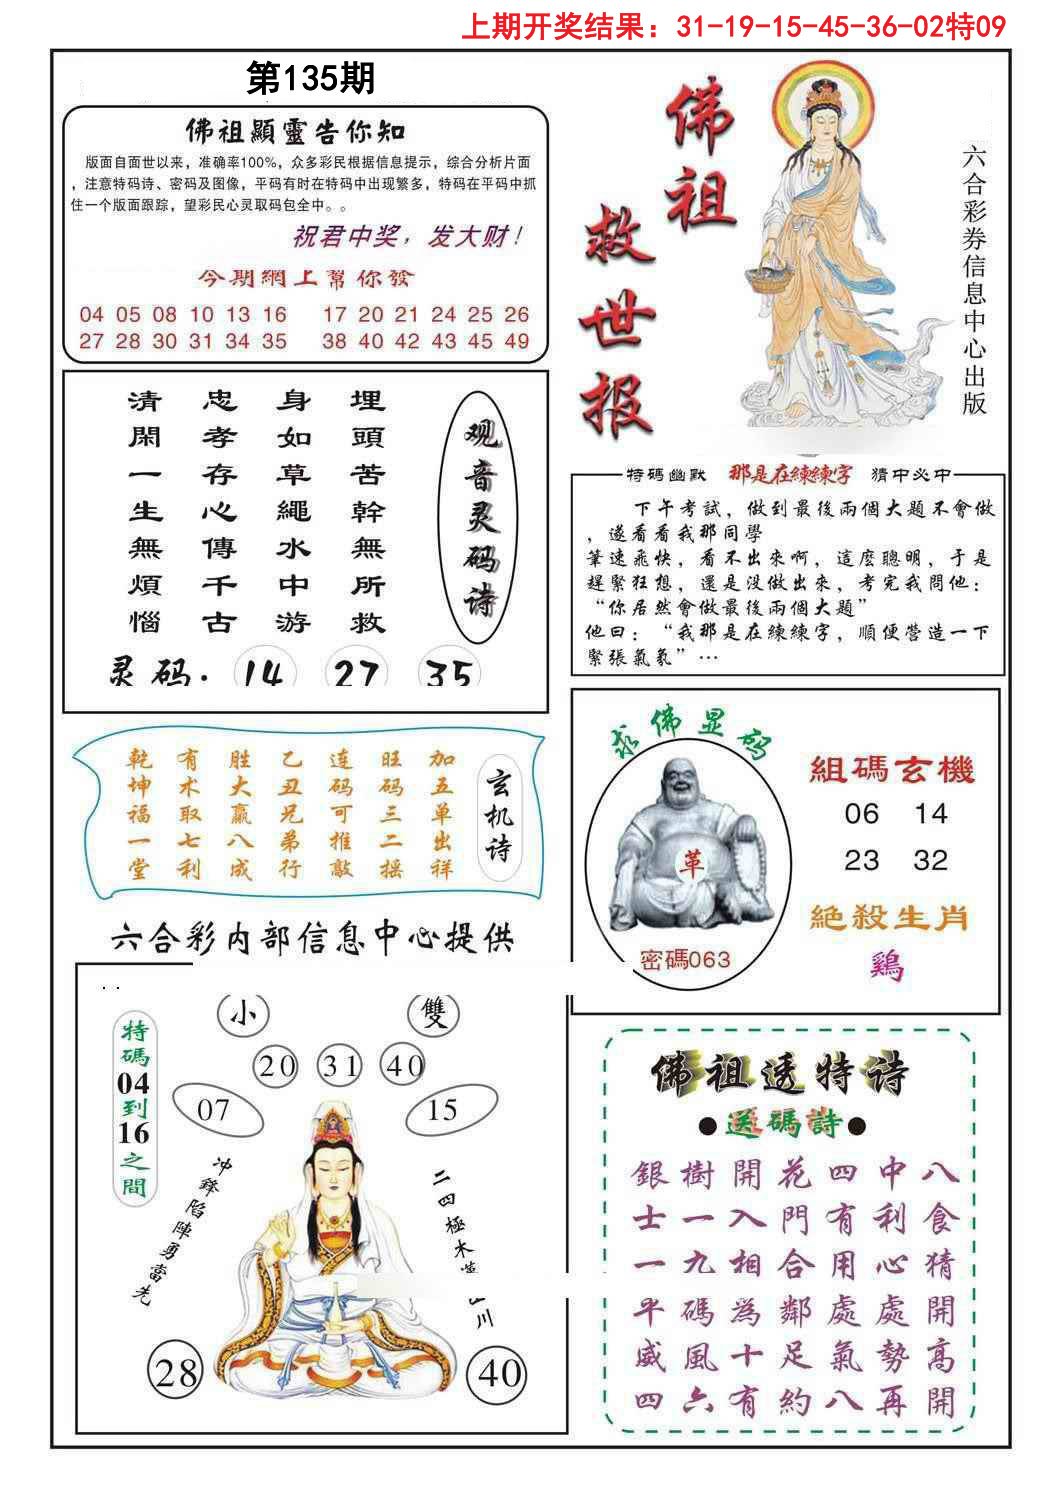 上期开奖结果：31-19-15-45-36-02特09
第135期
佛祖顯靈告你知
版面自面世以来，准确率100%，众多彩民根据信息提示，综合分析片面
，注意特码诗、密码及图像，平码有时在特码中出现繁多，特码在平码中抓
住一个版面跟踪，望彩民心灵取码包全中。。
祝君中奖，发大财！
今期網上幫你發
04 05 08 10 13 16 17 20 21 24 25 26
27 28 30 31 34 35 38 40 42 43 45 49
佛祖
救世报
六合彩券信息中心出版
观音灵码诗
埋頭苦幹無所救
身如草繩水中游
忠孝存心傳千古
清閑一生無煩惱
灵码. 14 27 35
特碼幽默 那是在練練字 猜中必中
下午考試，做到最後兩個大題不會做
，遂看看我那同學
筆速飛快，看不出來啊，這麼聰明，于是
趕緊狂想，還是没做出來，考完我問他：
“你居然會做最後兩個大題”
他曰：“我那是在練練字，順便營造一下
緊張氣氛”…
玄机诗
加五单出祥
旺码三二摇
连码可推敲
乙丑兄弟行
胜大赢八成
有术取七利
乾坤福一堂
求佛显码
革
密碼063
組碼玄機
06 14
23 32
絕殺生肖
鷄
六合彩内部信息中心提供
特碼04到16之間
小 雙
20 31 40
07 15
冲鋒陷陣勇當先
二四極木
川
28 40
佛祖透特诗
●送碼詩●
銀樹開花四中八
士一入門有利食
一九相合用心猜
平碼為鄰處處開
威風十足氣勢高
四六有約八再開